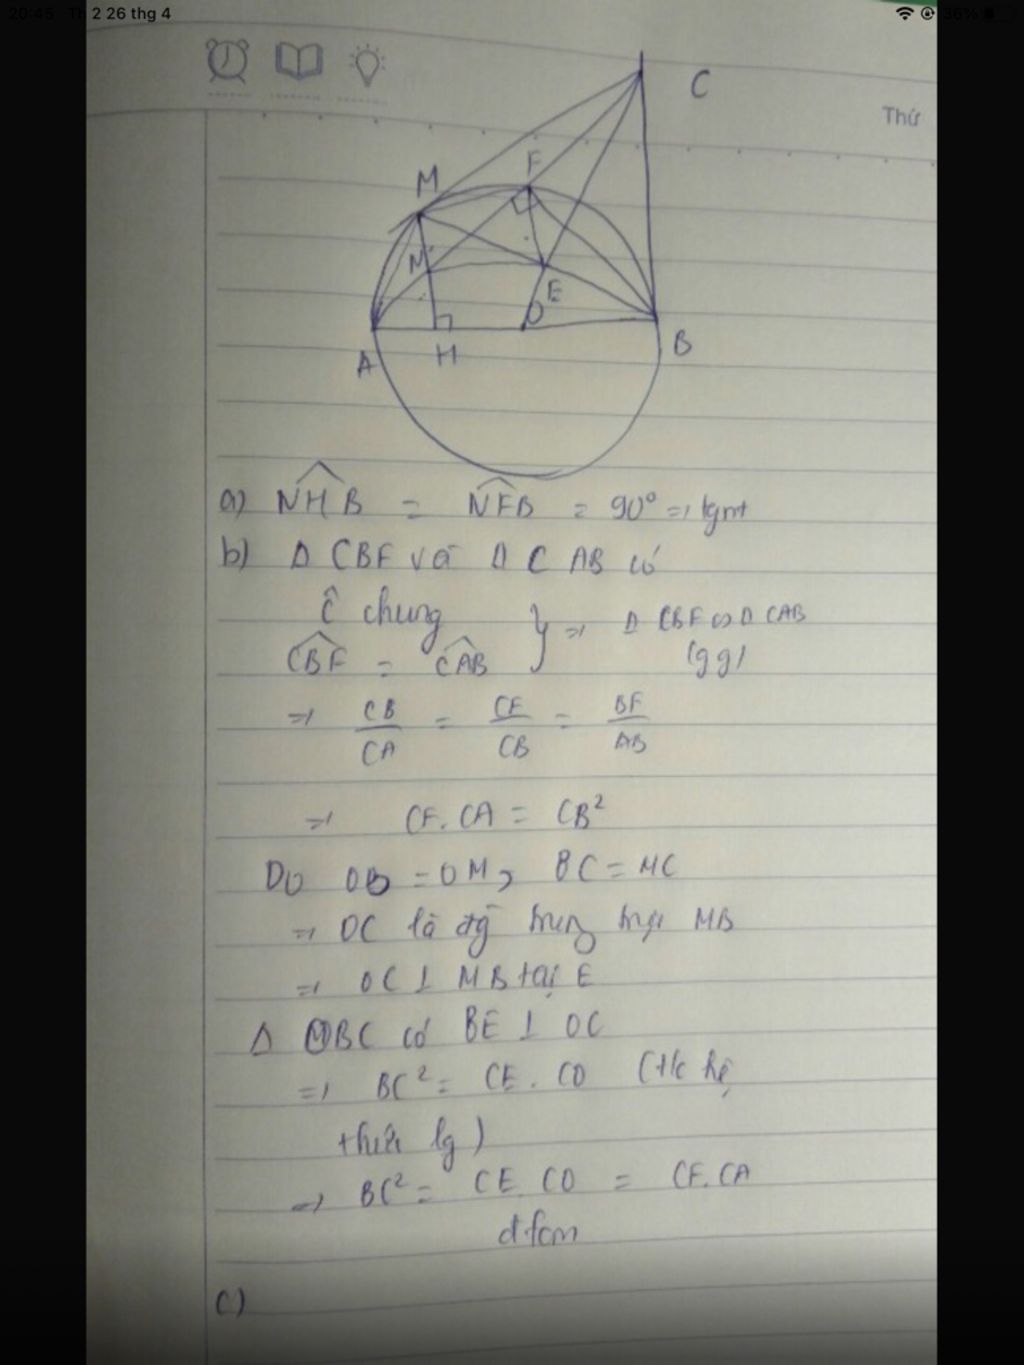 20:45 Th 2 26 thg 4
36%
C
Thứ
F
M
N
E
O
A
H
B
a) NHB = NFB = 90° => tgnt
b) Δ CBF và Δ CAB có
Ĉ chung
} => Δ CBF ∽ Δ CAB
CBF = CAB
(gg)
=> CB/CA = CF/CB = BF/AB
=> CF.CA = CB²
Do OB = OM, BC = MC
=> OC là đg trung trực MB
=> OC ⊥ MB tại E
Δ OBC có BE ⊥ OC
=> BC² = CE.CO (Hc hệ
thức lg)
=> BC² = CE.CO = CF.CA
đfcm
c)